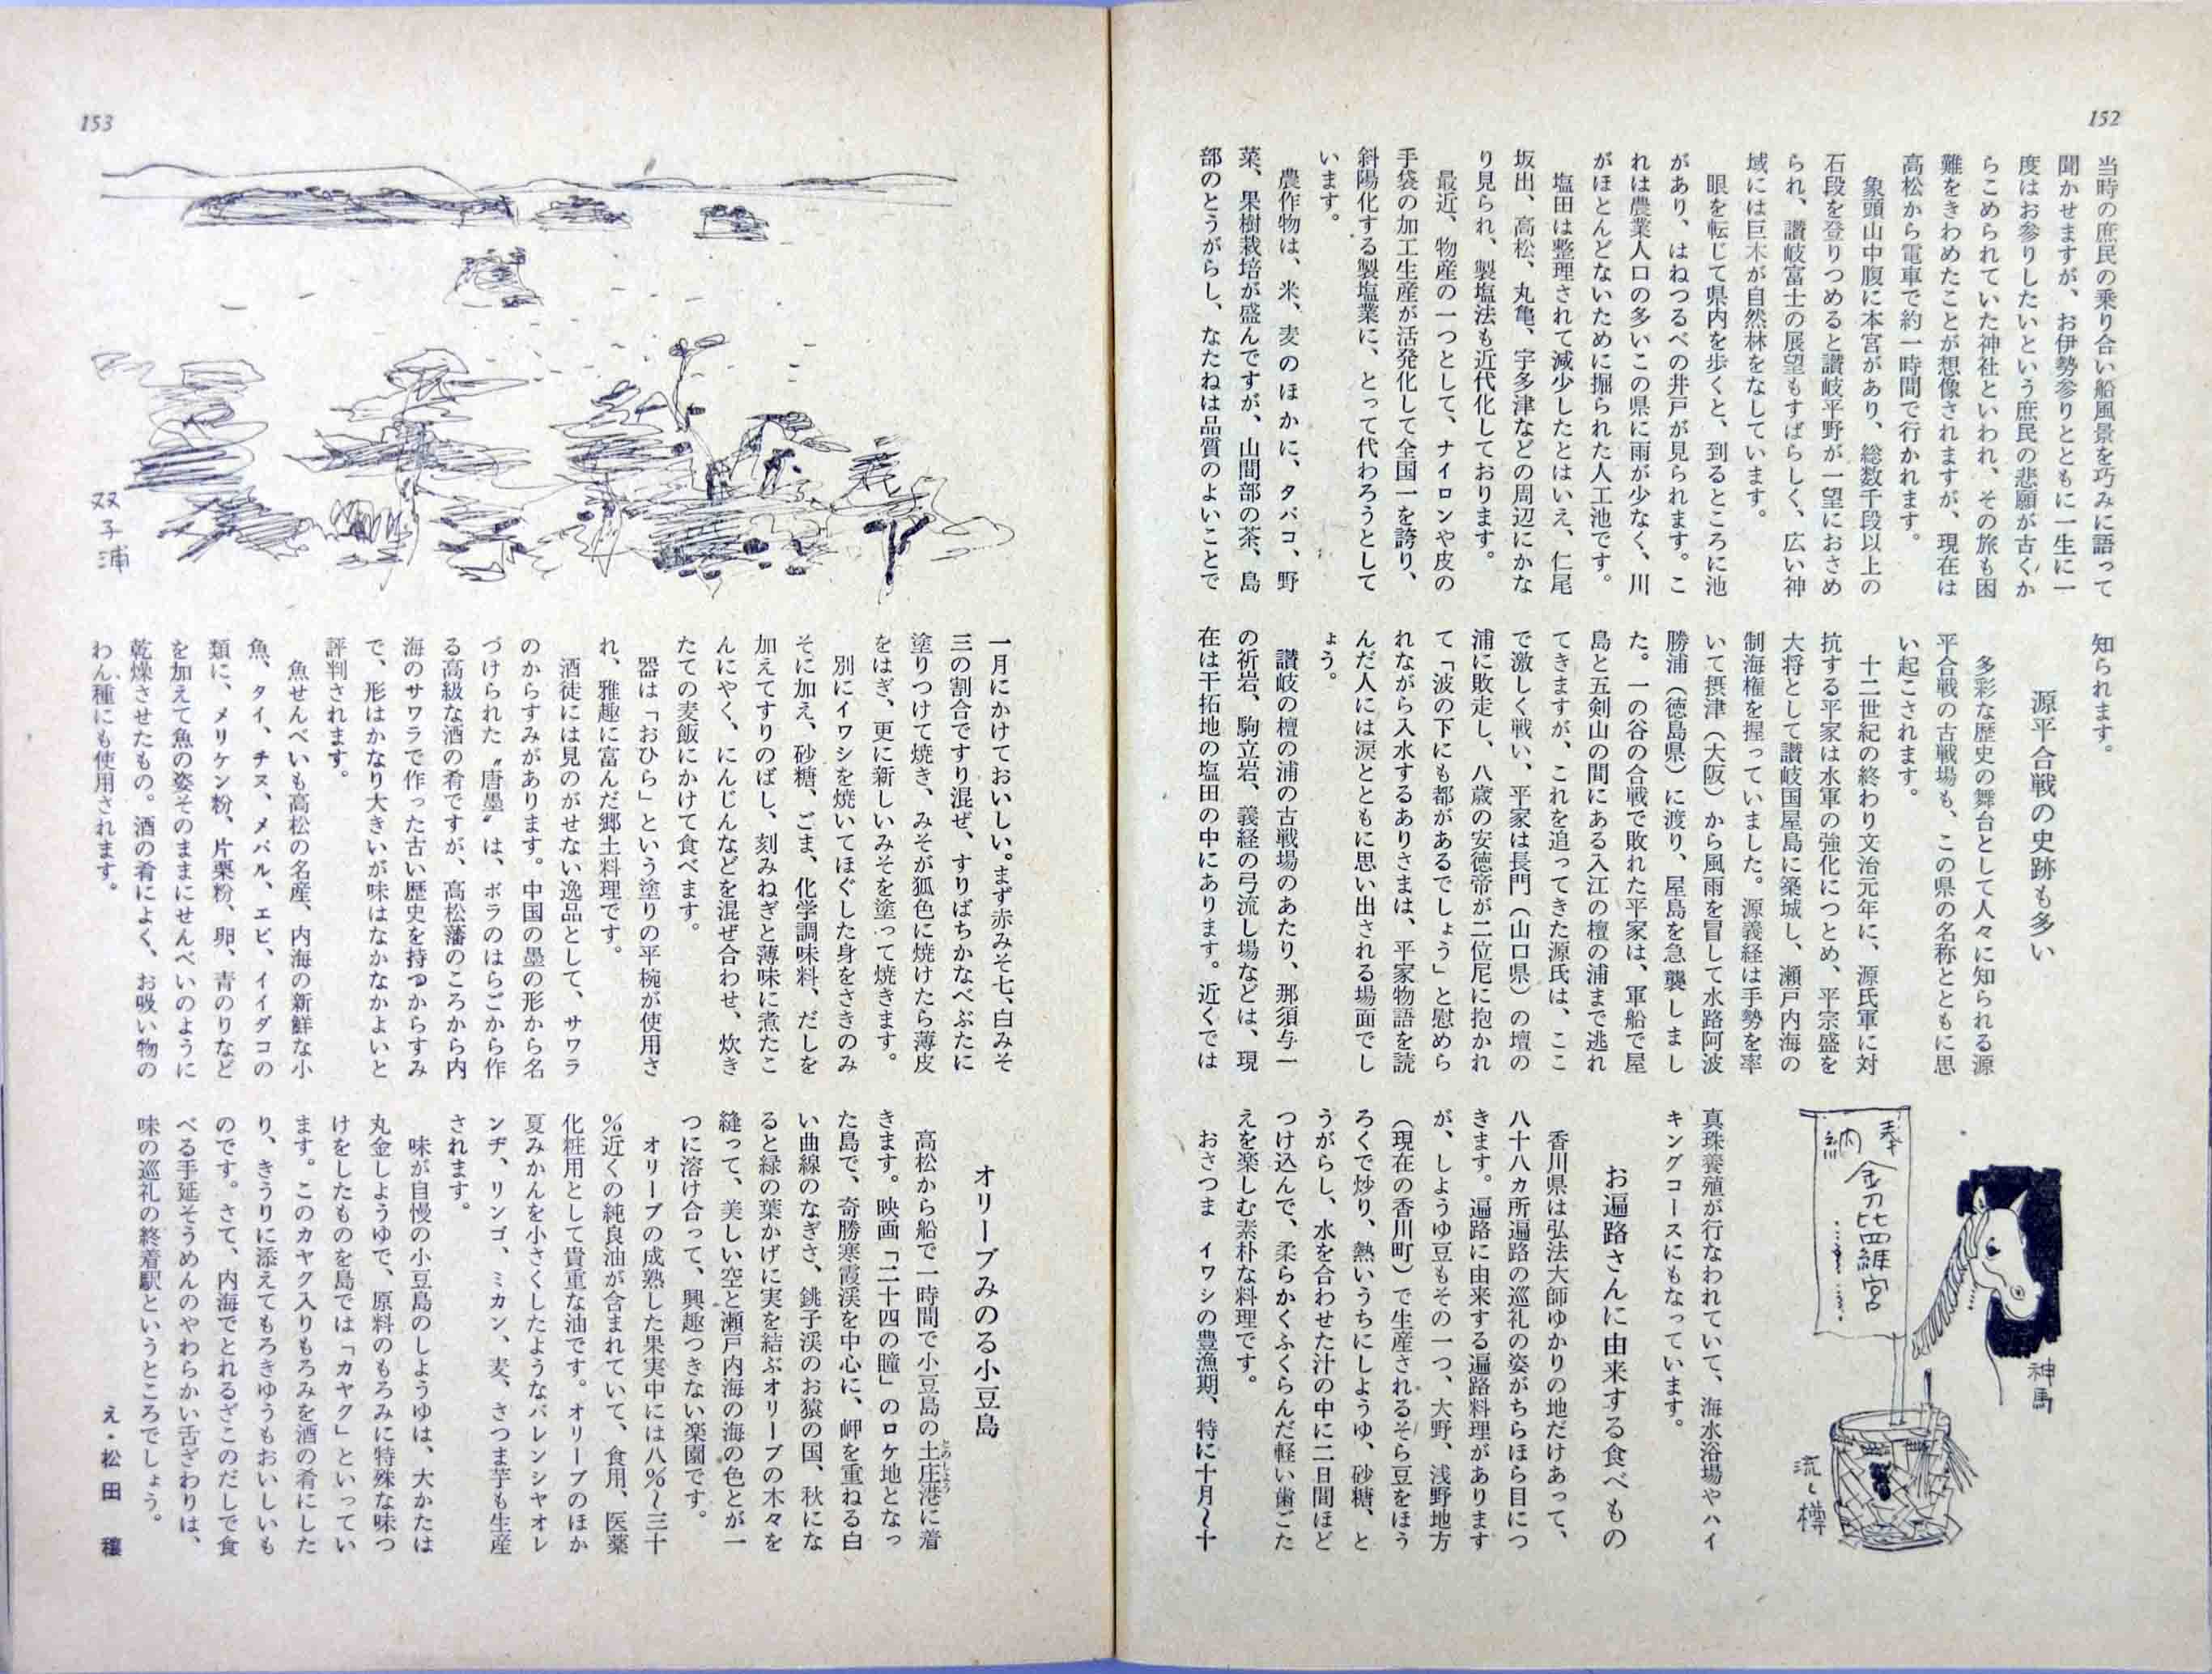 152
当時の庶民の乗り合い船風景を巧みに語って
聞かせますが、お伊勢参りとともに一生に一
度はお参りしたいという庶民の悲願が古くか
らこめられていた神社といわれ、その旅も困
難をきわめたことが想像されますが、現在は
高松から電車で約一時間で行かれます。
象頭山中腹に本宮があり、総数千段以上の
石段を登りつめると讃岐平野が一望におさめ
られ、讃岐富士の展望もすばらしく、広い神
域には巨木が自然林をなしています。
眼を転じて県内を歩くと、到るところに池
があり、はねつるべの井戸が見られます。こ
れは農業人口の多いこの県に雨が少なく、川
がほとんどないために掘られた人工池です。
塩田は整理されて減少したとはいえ、仁尾
坂出、高松、丸亀、宇多津などの周辺にかな
り見られ、製塩法も近代化しております。
最近、物産の一つとして、ナイロンや皮の
手袋の加工生産が活発化して全国一を誇り、
斜陽化する製塩業に、とって代わろうとして
います。
農作物は、米、麦のほかに、タバコ、野
菜、果樹栽培が盛んですが、山間部の茶、島
部のとうがらし、なたねは品質のよいことで
知られます。
源平合戦の史跡も多い
多彩な歴史の舞台として人々に知られる源
平合戦の古戦場も、この県の名称とともに思
い起こされます。
十二世紀の終わり文治元年に、源氏軍に対
抗する平家は水軍の強化につとめ、平宗盛を
大将として讃岐国屋島に築城し、瀬戸内海の
制海権を握っていました。源義経は手勢を率
いて摂津（大阪）から風雨を冒して水路阿波
勝浦（徳島県）に渡り、屋島を急襲しまし
た。一の谷の合戦で敗れた平家は、軍船で屋
島と五剣山の間にある入江の檀の浦まで逃れ
てきますが、これを追ってきた源氏は、ここ
で激しく戦い、平家は長門（山口県）の壇の
浦に敗走し、八歳の安徳帝が二位尼に抱かれ
て「波の下にも都があるでしょう」と慰めら
れながら入水するありさまは、平家物語を読
んだ人には涙とともに思い出される場面でし
ょう。
讃岐の檀の浦の古戦場のあたり、那須与一
の祈岩、駒立岩、義経の弓流し場などは、現
在は干拓地の塩田の中にあります。近くでは
奉
納
金刀比羅宮
神馬
流し樽
真珠養殖が行なわれていて、海水浴場やハイ
キングコースにもなっています。
お遍路さんに由来する食べもの
香川県は弘法大師ゆかりの地だけあって、
八十八カ所遍路の巡礼の姿がちらほら目につ
きます。遍路に由来する遍路料理があります
が、しようゆ豆もその一つ、大野、浅野地方
（現在の香川町）で生産されるそら豆をほう
ろくで炒り、熱いうちにしようゆ、砂糖、と
うがらし、水を合わせた汁の中に二日間ほど
つけ込んで、柔らかくふくらんだ軽い歯ごた
えを楽しむ素朴な料理です。
おさつま　イワシの豊漁期、特に十月〜十
153
双子浦
一月にかけておいしい。まず赤みそ七、白みそ
三の割合ですり混ぜ、すりばちかなべぶたに
塗りつけて焼き、みそが狐色に焼けたら薄皮
をはぎ、更に新しいみそを塗って焼きます。
別にイワシを焼いてほぐした身をさきのみ
そに加え、砂糖、ごま、化学調味料、だしを
加えてすりのばし、刻みねぎと薄味に煮たこ
んにやく、にんじんなどを混ぜ合わせ、炊き
たての麦飯にかけて食べます。
器は「おひら」という塗りの平椀が使用さ
れ、雅趣に富んだ郷土料理です。
酒徒には見のがせない逸品として、サワラ
のからすみがあります。中国の墨の形から名
づけられた〝唐墨〟は、ボラのはらごから作
る高級な酒の肴ですが、高松藩のころから内
海のサワラで作った古い歴史を持つからすみ
で、形はかなり大きいが味はなかなかよいと
評判されます。
魚せんべいも高松の名産、内海の新鮮な小
魚、タイ、チヌ、メバル、エビ、イイダコの
類に、メリケン粉、片栗粉、卵、青のりなど
を加えて魚の姿そのままにせんべいのように
乾燥させたもの。酒の肴によく、お吸い物の
わん種にも使用されます。
オリーブみのる小豆島
高松から船で一時間で小豆島の土庄港に着
とのしよう
きます。映画「二十四の瞳」のロケ地となっ
た島で、奇勝寒霞渓を中心に、岬を重ねる白
い曲線のなぎさ、銚子渓のお猿の国、秋にな
ると緑の葉かげに実を結ぶオリーブの木々を
縫って、美しい空と瀬戸内海の海の色とが一
つに溶け合って、興趣つきない楽園です。
オリーブの成熟した果実中には八％〜三十
％近くの純良油が含まれていて、食用、医薬
化粧用として貴重な油です。オリーブのほか
夏みかんを小さくしたようなバレンシヤオレ
ンヂ、リンゴ、ミカン、麦、さつま芋も生産
されます。
味が自慢の小豆島のしようゆは、大かたは
丸金しようゆで、原料のもろみに特殊な味つ
けをしたものを島では「カヤク」といってい
ます。このカヤク入りもろみを酒の肴にした
り、きうりに添えてもろきゆうもおいしいも
のです。さて、内海でとれるざこのだしで食
べる手延そうめんのやわらかい舌ざわりは、
味の巡礼の終着駅というところでしょう。
え・松田　穰